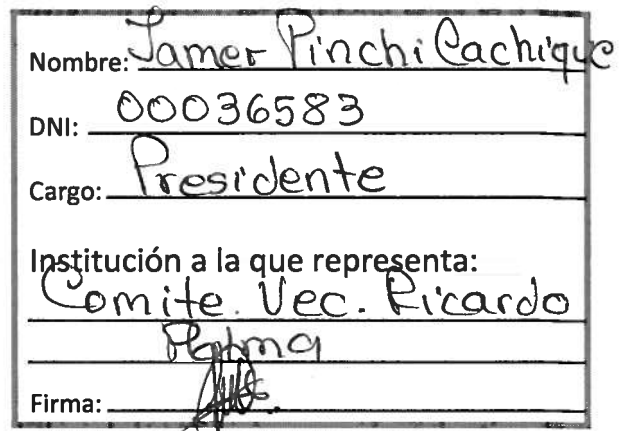 Nombre: Jamer Pinchi Cachique
DNI: 00036583
Cargo: Presidente
Institución a la que representa:
Comite. Vec. Ricardo
Palma
Firma: